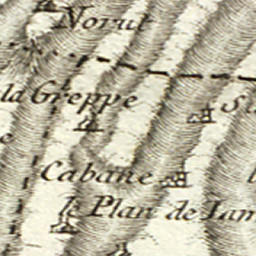 Norut
la Greppe
Cabane
le Plan de Jam